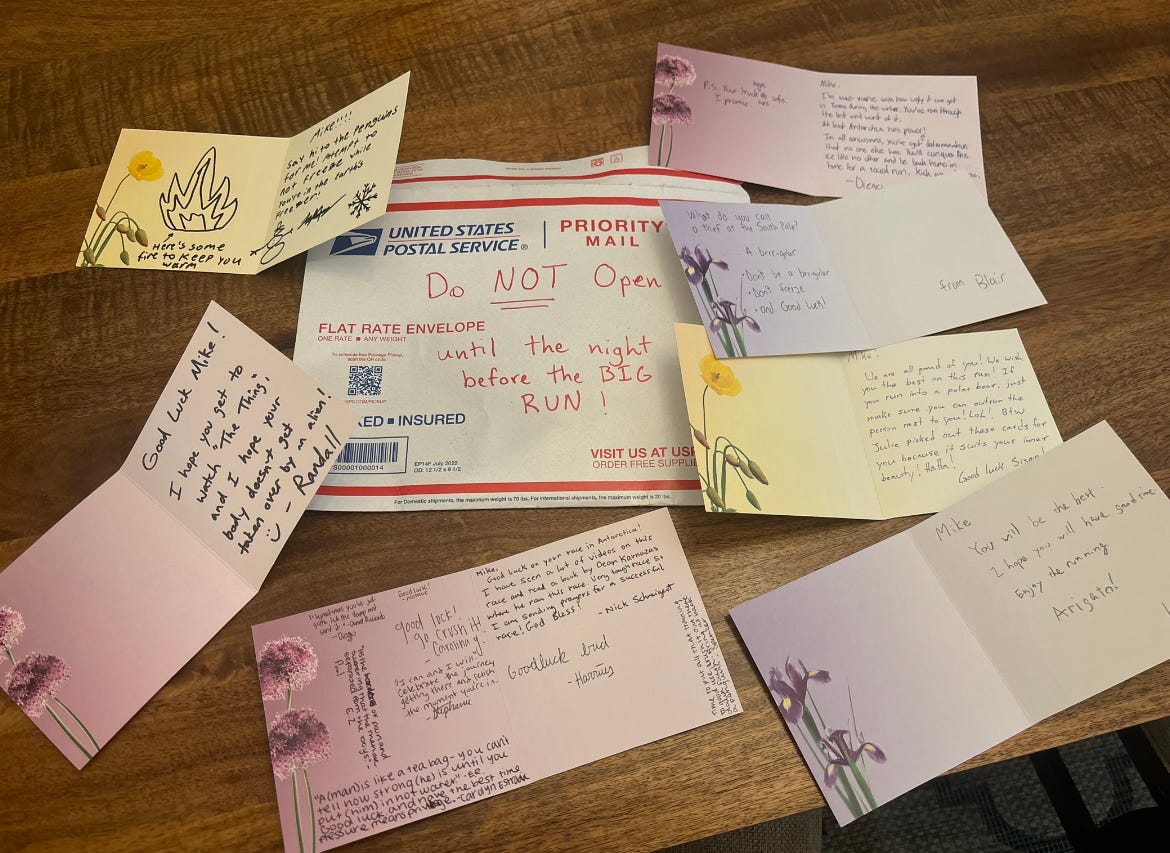 Mike!!!!
Say hi to the Penguins
for me! Attempt to
not freeze while
You're in the Earth's
Freezer!
Here's some
fire to keep you
warm
P.S. Your truck is safe.
I promise
Mike,
I'm sure you've seen how ugly it can get
in Texas during the winter. You've run through
the best and worst of it.
At least Antarctica has power!
In all seriousness, you've got determination
that no one else has. You'll conquer the
ice like no other and be back home in
time for a social run. Kick
-Diego
UNITED STATES
POSTAL SERVICE®
PRIORITY
MAIL
Do NOT Open
until the night
before the BIG
RUN!
FLAT RATE ENVELOPE
ONE RATE ■ ANY WEIGHT
To schedule free Package Pickup,
scan the QR code.
USPS.COM/PICKUP
KED ■ INSURED
S00001000014
EP14F July 2022
OD: 12 1/2 x 9 1/2
VISIT US AT US
ORDER FREE SUPPLIE
For Domestic shipments, the maximum weight is 70 lbs. For international shipments, the maximum weight is 20 lbs.
What do you call
a thief at the South Pole?
A brrr-gular
• Don't be a brrrgular
• Don't freeze
• and Good luck!
from Blair
Mike!
We are all proud of you! We wish
you the best on this run! If
you run into a polar bear, just
make sure you can outrun the
person next to you! LoL! BTW
Julie picked out these cards for
you because it suits your inner
beauty! HaHa!
Good luck
Good Luck Mike!
I hope you get to
watch "The Thing",
and I hope your
body doesn't get
taken over by an alien!
- Randall
Mike
You will be the best.
I hope you will have good time
Enjoy the running
Arigato!
Good Luck!
good luck!
go crush it!
Carolina g.
"I can and I will"
celebrate the journey
getting there and relish
the moment you're in.
- Stephanie
Mike,
Good luck on your race in Antarctica!
I have seen a lot of videos on this
race and read a book by Dean Karnazas
where he ran this race. Very tough race so
I am sending prayers for a successful
race. God Bless!
- Nick
Goodluck bud
-Harris
"A (man) is like a tea bag - you can't
tell how strong (he) is until you
put (him) in hot water." -ER
Good luck and have the best time
Pressure means privilege. -Carolyn Estrada